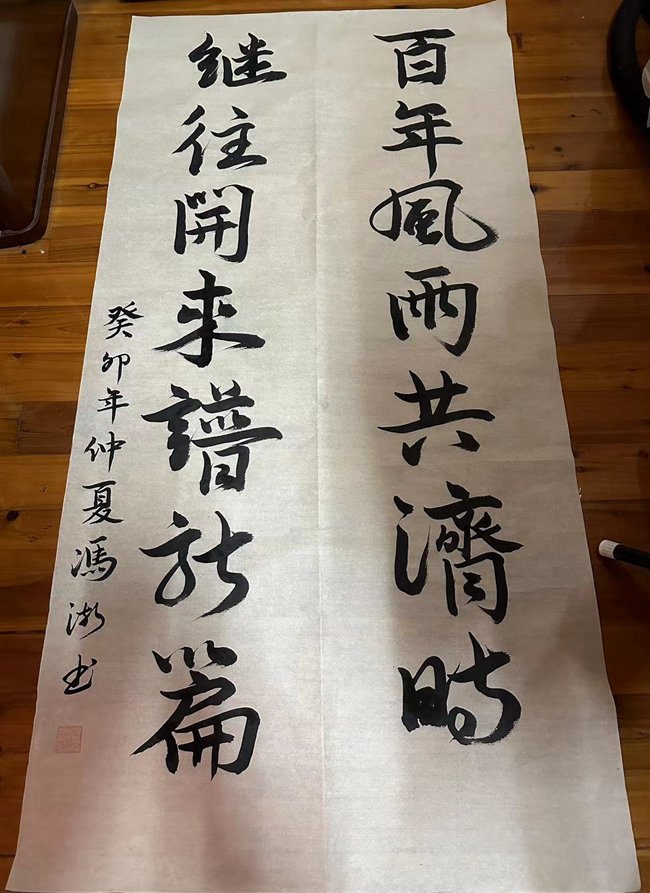 百年風雨共濟時
继往開來譜新篇
癸卯年仲夏馮淑书